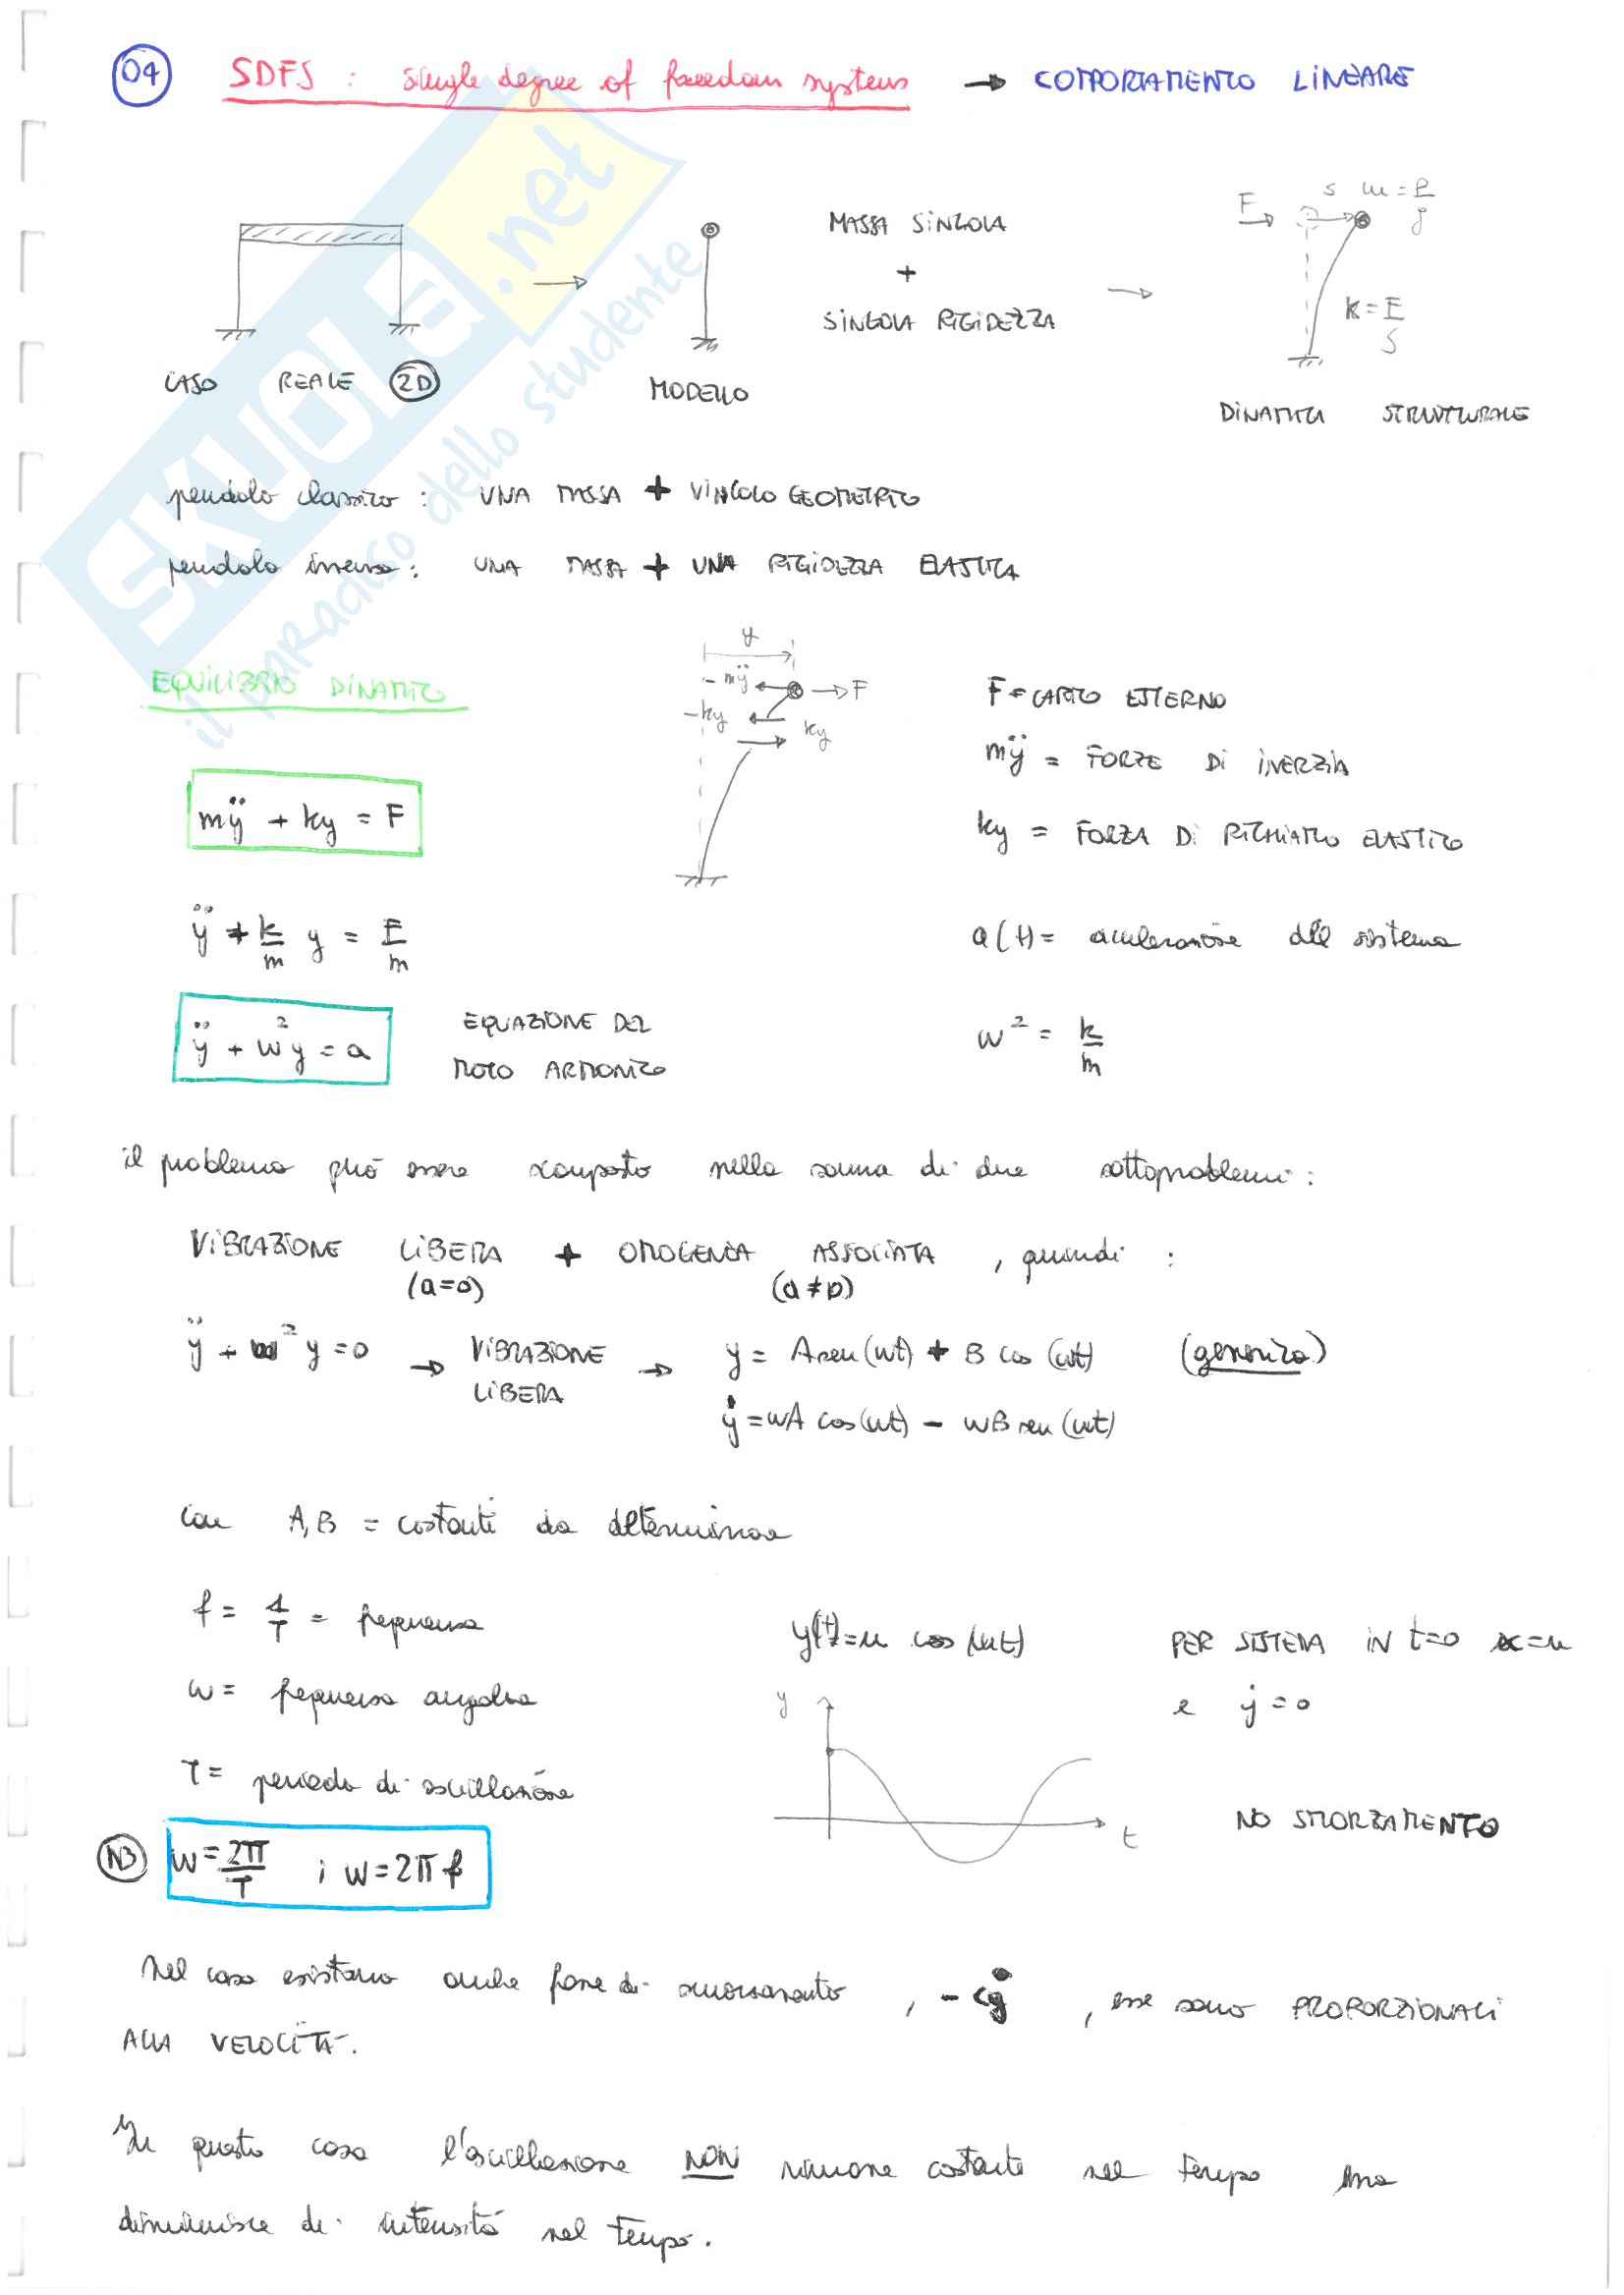 04 SDFS : single degree of freedom systems → COMPORTAMENTO LINEARE
F s m = P/g
MASSA SINGOLA
+
SINGOLA RIGIDEZZA
k = F/s
CASO REALE 2D
MODELLO
DINAMICA STRUTTURALE
pendolo classico : UNA MASSA + VINCOLO GEOMETRICO
pendolo inverso : UNA MASSA + UNA RIGIDEZZA ELASTICA
SKUOLA.net
il paradiso dello studente
EQUILIBRIO DINAMICO
y
-mÿ F
-ky ky
F = CARICO ESTERNO
mÿ = FORZE DI INERZIA
ky = FORZA DI RICHIAMO ELASTICO
mÿ + ky = F
ÿ + k/m y = F/m
a(t) = accelerazione del sistema
ÿ + w² y = a
EQUAZIONE DEL
MOTO ARMONICO
w² = k/m
il problema può essere scomposto nella somma di due sottoproblemi :
VIBRAZIONE LIBERA + OMOGENEA ASSOCIATA , quindi :
(a=0) (a≠0)
ÿ + w² y = 0 → VIBRAZIONE LIBERA → y = A sen(wt) + B cos(wt) (generica)
ẏ = wA cos(wt) - wB sen(wt)
con A,B = costanti da determinare
f = 1/T = frequenza
w = frequenza angolare
T = periodo di oscillazione
y(t) = u cos(wt)
PER SISTEMA IN t=0 x=u
e ẏ = 0
y
t
NO SMORZAMENTO
NB w = 2π/T ; w = 2π f
Nel caso esistano anche forze di smorzamento , - cẏ , esse sono PROPORZIONALI
ALLA VELOCITÀ.
In questo caso l'oscillazione NON rimane costante nel tempo ma
diminuisce di intensità nel tempo.